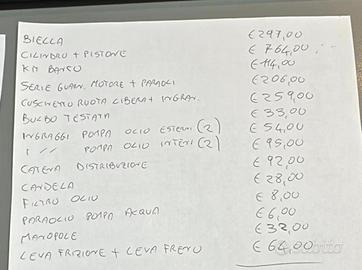 BIELLA € 297,00
CILINDRO + PISTONE € 764,00
KM BANCO € 114,00
SERIE GUARN. MOTORE + PARAOLI € 206,00
CUSCINETTO RUOTA LIBERA + INGRAN. € 259,00
BULBO TESTATA € 33,00
INGRAGGI POMPA OLIO ESTERNI (2) € 54,00
POMPA OLIO INTERNI (2) € 95,00
CATENA DISTRIBUZIONE € 92,00
CANDELA € 28,00
FILTRO OLIO € 8,00
PARAOLIO POMPA ACQUA € 6,00
MANOPOLE € 32,00
LEVA FRIZIONE + LEVA FRENO € 64,00
subito